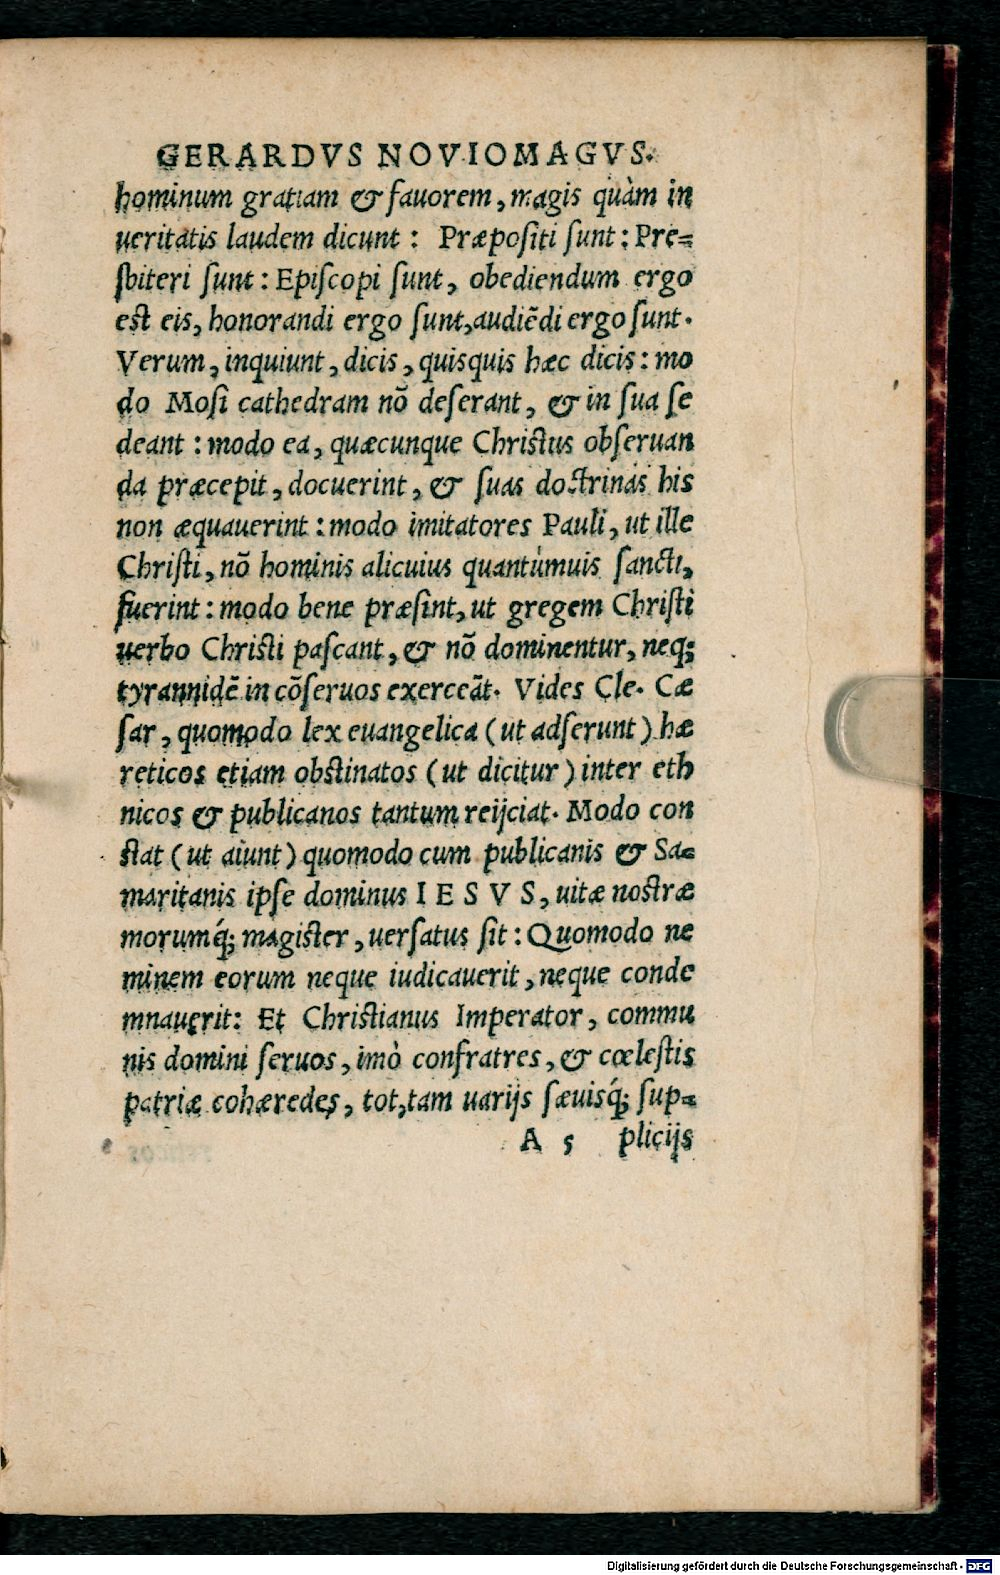 GERARDVS NOVIOMAGVS.
hominum gratiam & fauorem, magis quàm in
ueritatis laudem dicunt : Præpositi sunt : Pre=
sbiteri sunt : Episcopi sunt, obediendum ergo
est eis, honorandi ergo sunt, audiẽdi ergo sunt.
Verum, inquiunt, dicis, quisquis hæc dicis : mo
do Mosi cathedram nõ deserant, & in sua se
deant : modo ea, quæcunque Christus obseruan
da præcepit, docuerint, & suas doctrinas his
non æquauerint : modo imitatores Pauli, ut ille
Christi, nõ hominis alicuius quantúmuis sancti,
fuerint : modo bene præsint, ut gregem Christi
uerbo Christi pascant, & nõ dominentur, neq;
tyrannidẽ in cõseruos exerceãt. Vides Cle. Cæ
sar, quomodo lex euangelica (ut adserunt) hæ
reticos etiam obstinatos (ut dicitur) inter eth
nicos & publicanos tantum reijciat. Modo con
stat (ut aiunt) quomodo cum publicanis & Sa=
maritanis ipse dominus IESVS, uitæ nostræ
morumq́; magister, uersatus sit : Quomodo ne
minem eorum neque iudicauerit, neque conde
mnauerit: Et Christianus Imperator, commu
nis domini seruos, imò confratres, & cœlestis
patriæ cohæredes, tot, tam uarijs sæuisq́; sup=
A 5 plicijs
Digitalisierung gefördert durch die Deutsche Forschungsgemeinschaft - DFG